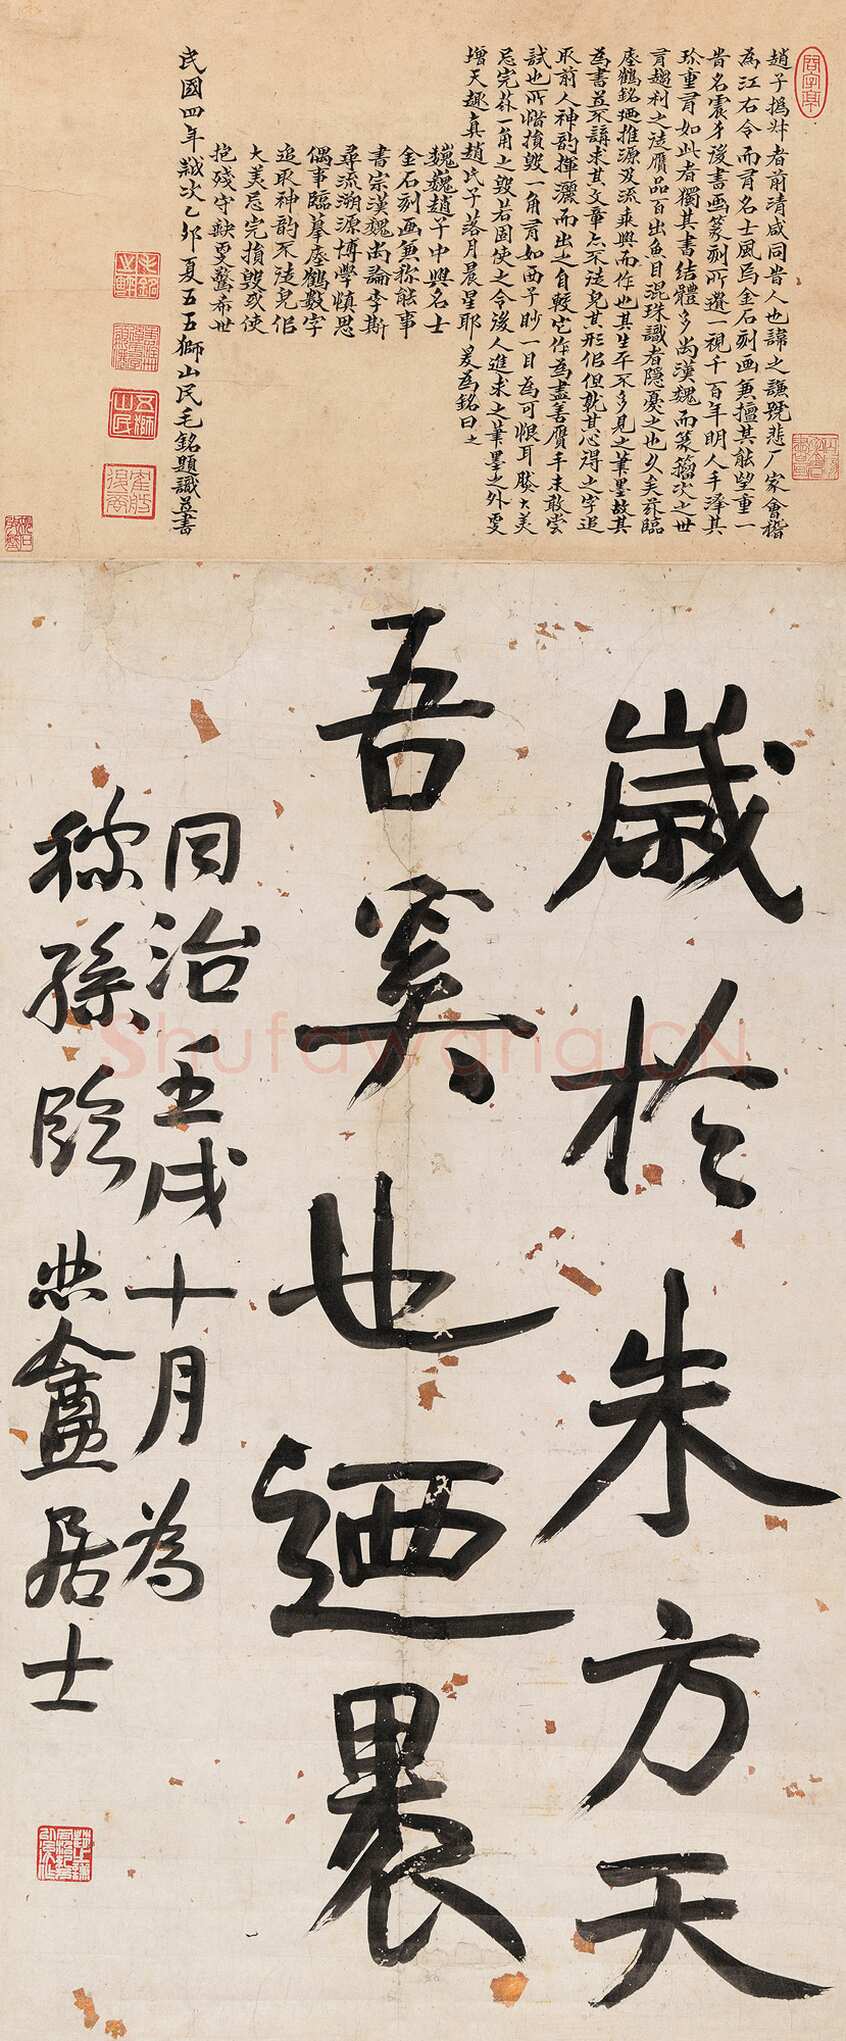 趙子撝叔者前清咸同昔人也諱之謙號悲厂家會稽
為江右令而有名士風烏金石刻画兼擅其能望重一
昔名震身後書画篆刻所遺一視千百年明人手澤其
珍重有如此者獨其書结體多尚漢魏而篆籀次之世
有趨利之徒贋品百出魚目混珠識者隱憂之也久矣茲臨
瘞鶴銘廼推源及流乘興而作也其生平不多見之筆墨故其
為書並不講求其文章亦不徒見其形佀但就其心得之字追
取前人神韵揮灑而出之自較它作為盡善贋手未敢嘗
試也所惜損毁一角有如西子眇一目為可恨耳然大美
忌完茲一角之毁若固使之令後人進求之筆墨之外更
增天趣真趙氏子落月晨星耶爰為銘曰之
巍巍趙子中興名士
金石刻画兼称能事
書宗漢魏尚論李斯
尋流溯源博學慎思
偶事臨摹瘞鶴數字
追取神韵不徒皃佀
大美忌完損毁或使
抱殘守缺更驚希世
民國四年歲次乙卯夏五五獅山民毛銘題識並書
歲於朱方天
吾奚也廼裹
同治壬戌十月為
稼孫臨 悲盦居士
五獅
山民
Shufawang.CN